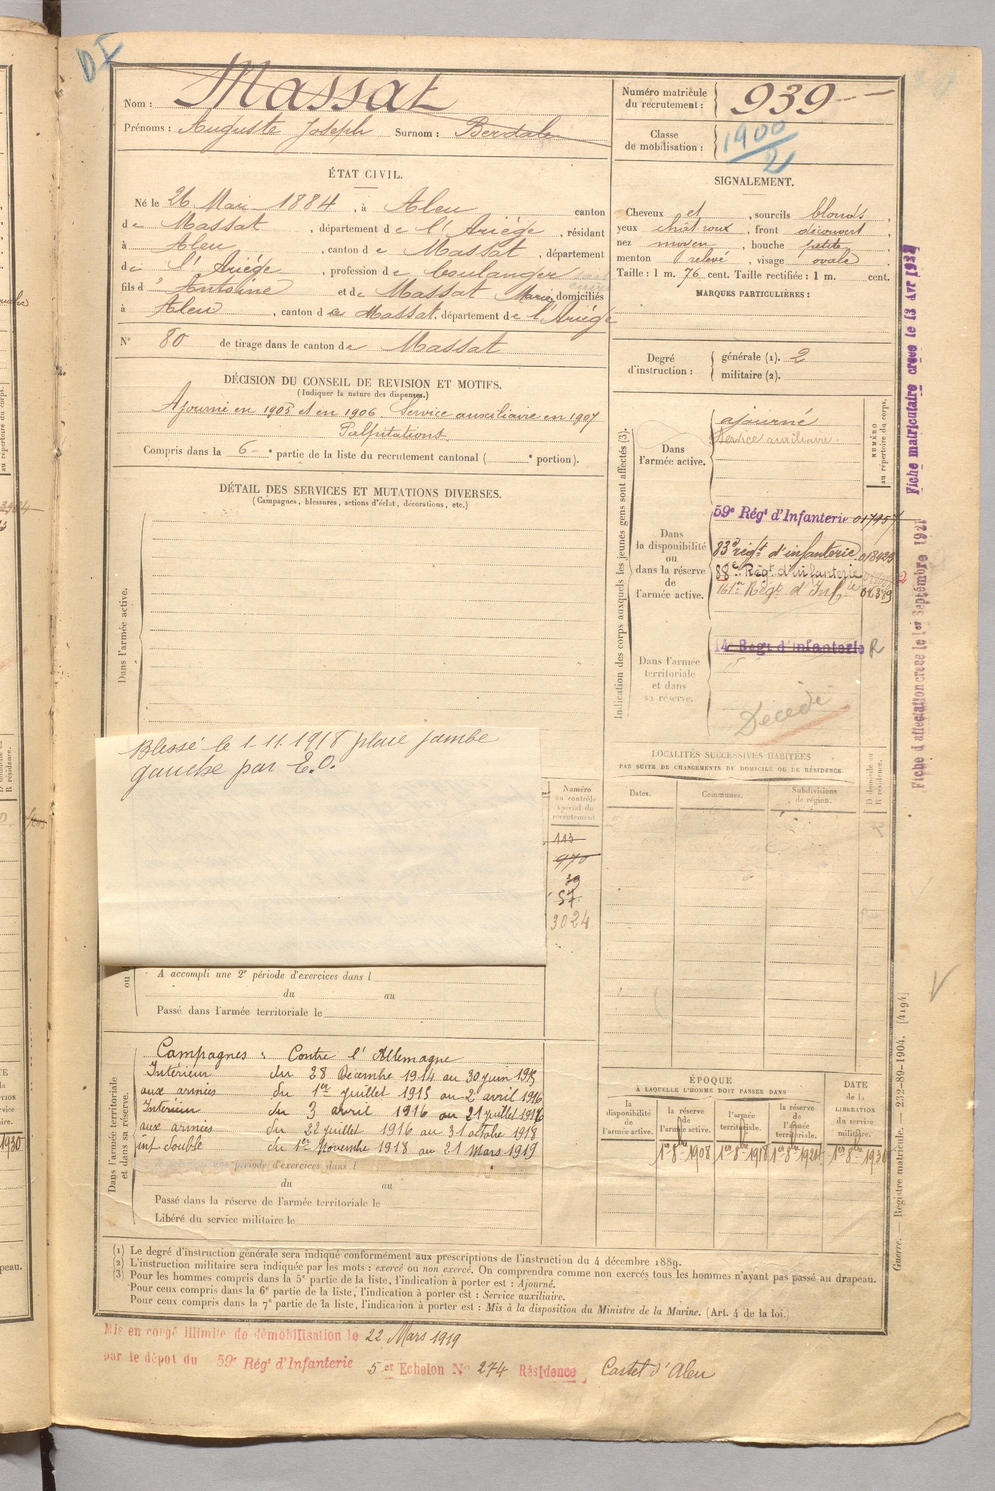 DI
Nom : Massat
Prénoms : Auguste Joseph Surnom : Berdale
ÉTAT CIVIL.
Né le 26 Mars 1884, à Aleu canton
de Massat, département de l'Ariége, résidant
à Aleu, canton de Massat, département
de l'Ariége, profession de boulanger
fils d'Antoine et de Massat Marie, domiciliés
à Aleu, canton de Massat, département de l'Ariége
N° 80 de tirage dans le canton de Massat
DÉCISION DU CONSEIL DE REVISION ET MOTIFS.
(Indiquer la nature des dispenses.)
Ajourné en 1905 et en 1906. Service auxiliaire en 1907
Palpitations.
Compris dans la 6e partie de la liste du recrutement cantonal ( e portion).
DÉTAIL DES SERVICES ET MUTATIONS DIVERSES.
(Campagnes, blessures, actions d'éclat, décorations, etc.)
Dans l'armée active.
Blessé le 1.11.1918 plaie jambe
gauche par E.O.
Numéro
au contrôle
spécial du
recrutement
113
970
39
57
3024
A accompli une 2e période d'exercices dans l
du au
Passé dans l'armée territoriale le
Dans l'armée territoriale
et dans sa réserve.
Campagnes : Contre l'Allemagne
Intérieur du 28 Décembre 1914 au 30 juin 1915
aux armées du 1er juillet 1915 au 2 avril 1916
Intérieur du 3 avril 1916 au 21 juillet 1916
aux armées du 22 juillet 1916 au 31 octobre 1918
int. double du 1er Novembre 1918 au 21 Mars 1919
période d'exercices dans l
du au
Passé dans la réserve de l'armée territoriale le
Libéré du service militaire le
Numéro matricule
du recrutement : 939
Classe
de mobilisation : 1900/2
SIGNALEMENT.
Cheveux et, sourcils blonds,
yeux chat roux, front découvert,
nez moyen, bouche petite,
menton relevé, visage ovale
Taille : 1 m. 76 cent. Taille rectifiée : 1 m. cent.
MARQUES PARTICULIÈRES :
Degré
d'instruction :
générale (1). 2
militaire (2).
Indication des corps auxquels les jeunes gens sont affectés (3).
NUMÉRO
au répertoire du corps.
Dans
l'armée active.
ajourné
Service auxiliaire.
Dans
la disponibilité
ou
dans la réserve
de
l'armée active.
59e Régt d'Infanterie 017957
83e régt d'infanterie 018423
88e Régt d'infanterie
161e Régt d'Infie 01389
Dans l'armée
territoriale
et dans
sa réserve.
14e Régt d'Infanterie R
Décédé
LOCALITÉS SUCCESSIVES HABITÉES
PAR SUITE DE CHANGEMENTS DE DOMICILE OU DE RÉSIDENCE.
Dates.
Communes.
Subdivisions
de région.
D domicile ou
R résidence.
ÉPOQUE
À LAQUELLE L'HOMME DOIT PASSER DANS
la
disponibilité
de
l'armée active.
la réserve
de
l'armée active.
l'armée
territoriale.
la réserve
de
l'armée
territoriale.
DATE
de la
LIBÉRATION
du service
militaire.
1er 8bre 1908
1er 8bre 1918
1er 8bre 1924
1er 8bre 1930
(1) Le degré d'instruction générale sera indiqué conformément aux prescriptions de l'instruction du 4 décembre 1889.
(2) L'instruction militaire sera indiquée par les mots : exercé ou non exercé. On comprendra comme non exercés tous les hommes n'ayant pas passé au drapeau.
(3) Pour les hommes compris dans la 5e partie de la liste, l'indication à porter est : Ajourné.
Pour ceux compris dans la 6e partie de la liste, l'indication à porter est : Service auxiliaire.
Pour ceux compris dans la 7e partie de la liste, l'indication à porter est : Mis à la disposition du Ministre de la Marine. (Art. 4 de la loi.)
Mis en congé illimité de démobilisation le 22 Mars 1919
par le dépôt du 59e Régt d'Infanterie 5 et Echelon N° 274 Résidence Castet d'Aleu
Fiche matriculaire créée le 13 Avr 1932
Fiche d'affectation créée le 1er Septembre 1921
Guerre. — Registre matricule. — 232-89-1904. [4194]